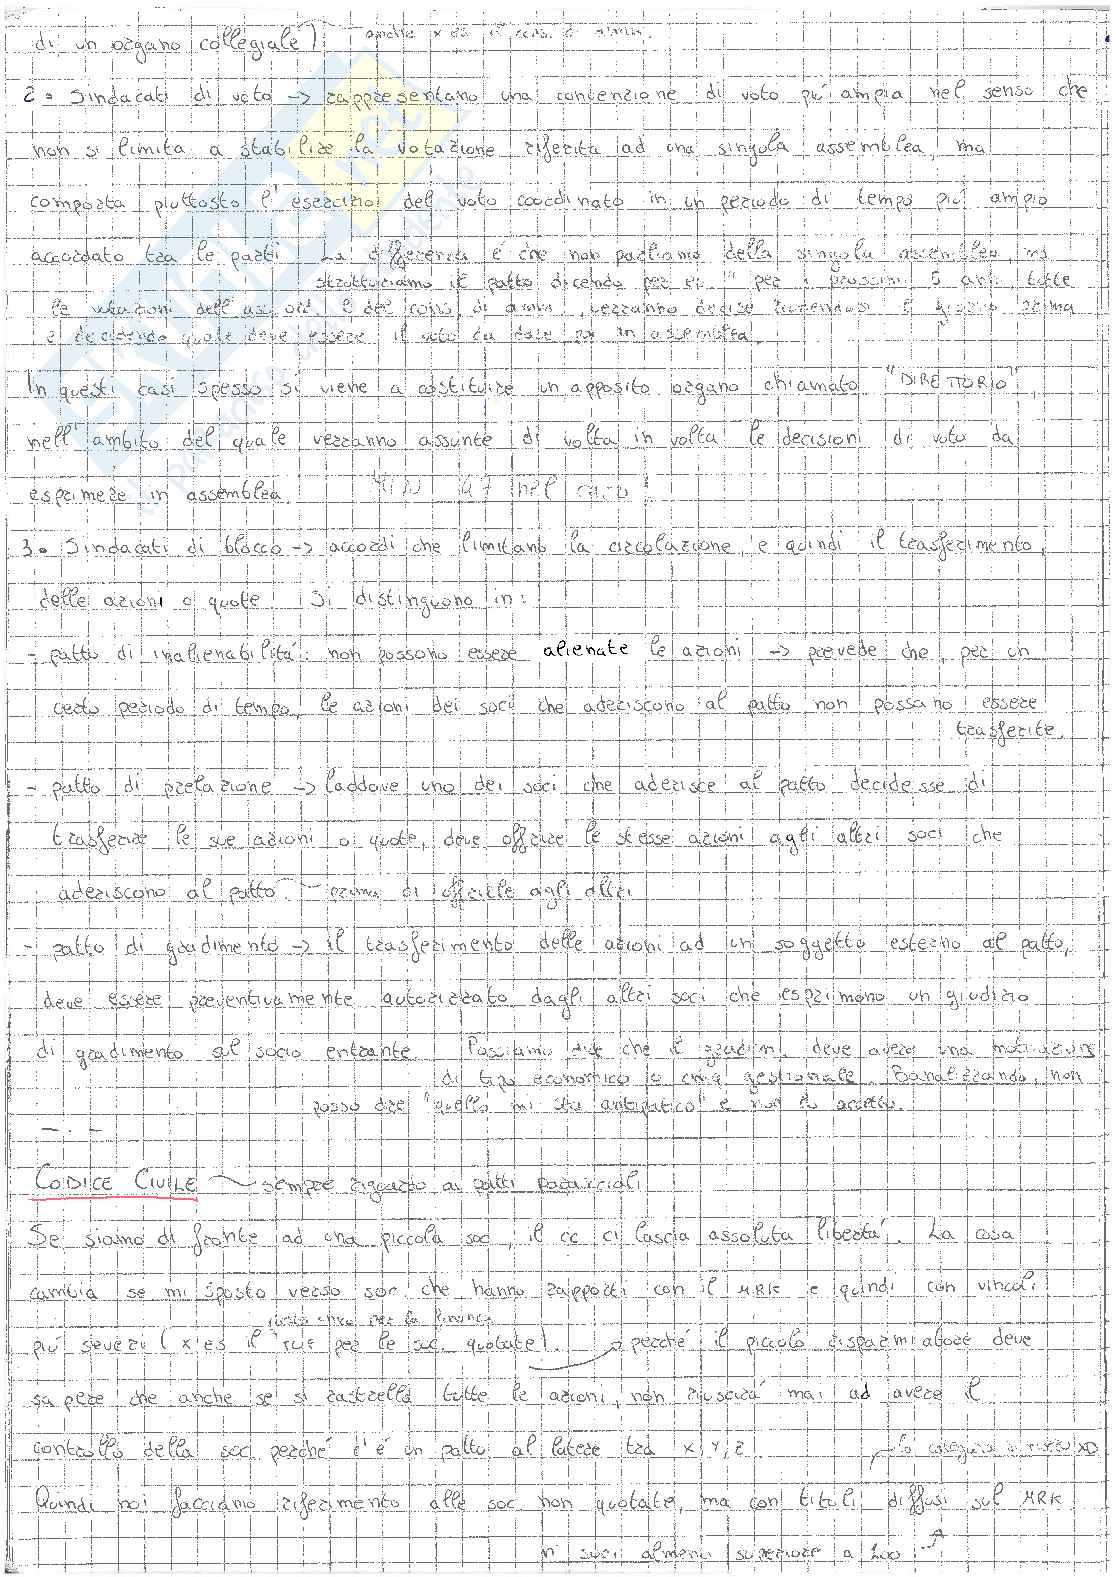 di un organo collegiale). anche x es il cons. d'ammin.
2. Sindacati di voto -> rappresentano una convenzione di voto piú ampia nel senso che
non si limita a stabilire la votazione riferita ad una singola assemblea, ma
comporta piuttosto l'esercizio del voto coordinato in un periodo di tempo più ampio
accordato tra le parti. La differenza é che non parliamo della singola assemblea, ma
strutturiamo il patto dicendo per es. "per i prossimi 5 anni tutte
le votazioni dell'ass. ord. e del cons. di amm., verranno decise il giorno prima
e decidendo quale deve essere il voto da dare poi in assemblea.
In questi casi spesso si viene a costituire un apposito organo chiamato "DIRETTORIO",
nell'ambito del quale verranno assunte di volta in volta le decisioni di voto da
esprimere in assemblea.
3. Sindacati di blocco -> accordi che limitano la circolazione, e quindi il trasferimento,
delle azioni o quote. Si distinguono in:
- patto di inalienabilitá: non possono essere alienate le azioni -> prevede che, per un
certo periodo di tempo, le azioni dei soci che aderiscono al patto non possano essere
trasferite.
- patto di prelazione -> laddove uno dei soci che aderisce al patto decidesse di
trasferire le sue azioni o quote, deve offrire le stesse azioni agli altri soci che
aderiscono al patto. prima di offrirle agli altri
- patto di gradimento -> il trasferimento delle azioni ad un soggetto esterno al patto,
deve essere preventivamente autorizzato dagli altri soci che esprimono un giudizio
di gradimento sul socio entrante. Possiamo dire che il gradim. deve avere una motivazione
di tipo economico o cmq gestionale. Banalizzando, non
posso dire "quello mi sta antipatico" e non lo accetto.
— . —
CODICE CIVILE sempre riguardo ai patti parasociali
Se siamo di fronte ad una piccola soc, il cc ci lascia assoluta libertá. La cosa
cambia se mi sposto verso soc. che hanno rapporti con il MRK e quindi con vincoli
piú severi (x es il TUF per le soc. quotate). perché il piccolo risparmiatore deve
testo unico per la finanza
sapere che anche se si rastrella tutte le azioni, non riuscirá mai ad avere il
controllo della soc. perché c'é un patto al latere tra X, Y, Z.
Quindi noi facciamo riferimento alle soc non quotate, ma con titoli diffusi sul MRK
n° soci almeno superiore a 200